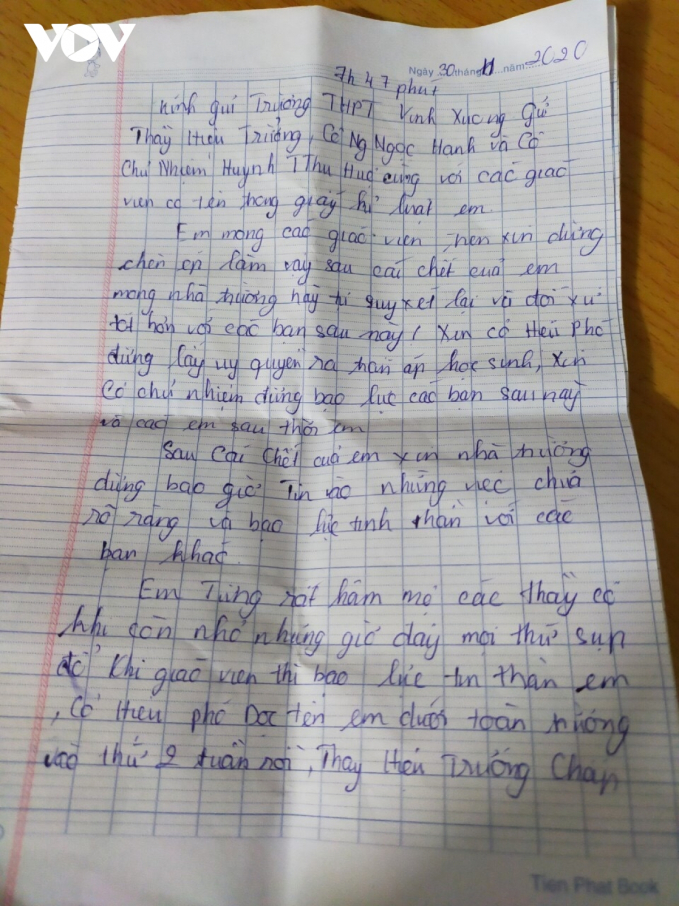 VOV
Ngày 30 tháng 11 năm 2020
7h 47 phút
Kính gửi Trường THPT Vĩnh Xương Gửi
Thầy Hiệu Trưởng, Cô Ng Ngọc Hanh và Cô
Chủ Nhiệm Huỳnh T Thu Huệ cùng với các giáo
viên có tên trong giấy kỉ luật em.
Em mong các giáo viên, nên xin đừng
chèn ép làm vậy sau cái chết của em
mong nhà trường hãy suy xét lại và đối xử
tốt hơn với các bạn sau này! Xin cô Hiệu Phó
đừng lấy uy quyền ra trấn áp học sinh, xin
Cô chủ nhiệm đừng bạo lực các bạn sau này
và các em sau thời em
Sau Cái Chết của em xin nhà trường
đừng bao giờ Tin vào những việc chưa
rõ ràng và bạo lực tinh thần với các
bạn khác.
Em Từng rất hâm mộ các thầy cô
khi còn nhỏ nhưng giờ đây mọi thứ sụp
đổ Khi giáo viên thì bạo lực tin thần em
, Cô Hiệu phó Đọc tên em dưới toàn trường
vào thứ 2 tuần rồi, Thầy Hiệu Trưởng Chấp
Tien Phat Book